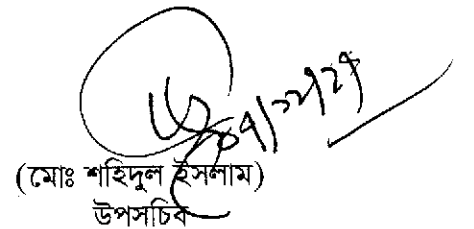 (মোঃ শহিদুল ইসলাম)
উপসচিব